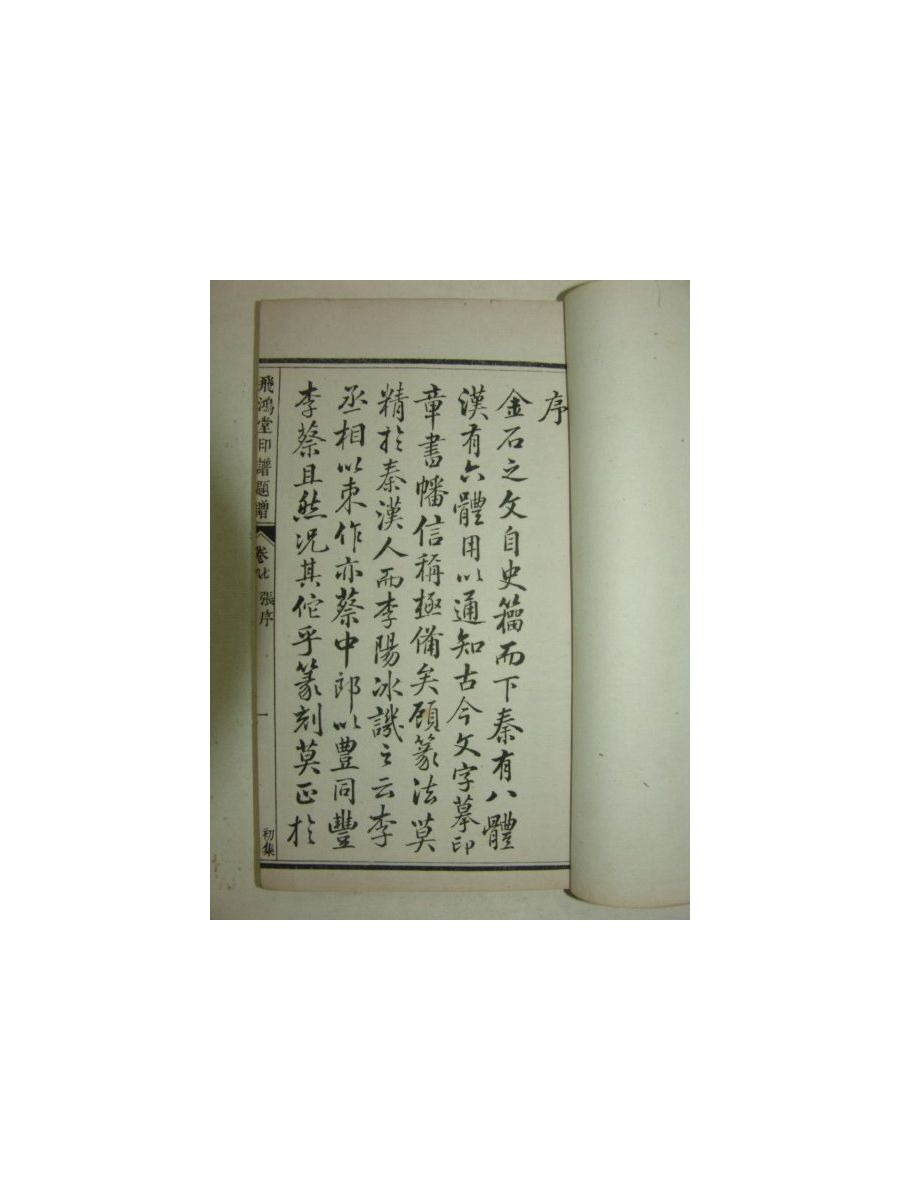 序
金石之文自史籀而下秦有八體
漢有六體用以通知古今文字摹印
章書幡信稱極備矣顧篆法莫
精於秦漢人而李陽冰譏之云李
丞相以束作亦蔡中郎以豊同豐
李蔡且然况其佗乎篆刻莫正於
飛鴻堂印譜題
卷
張序
一
初集